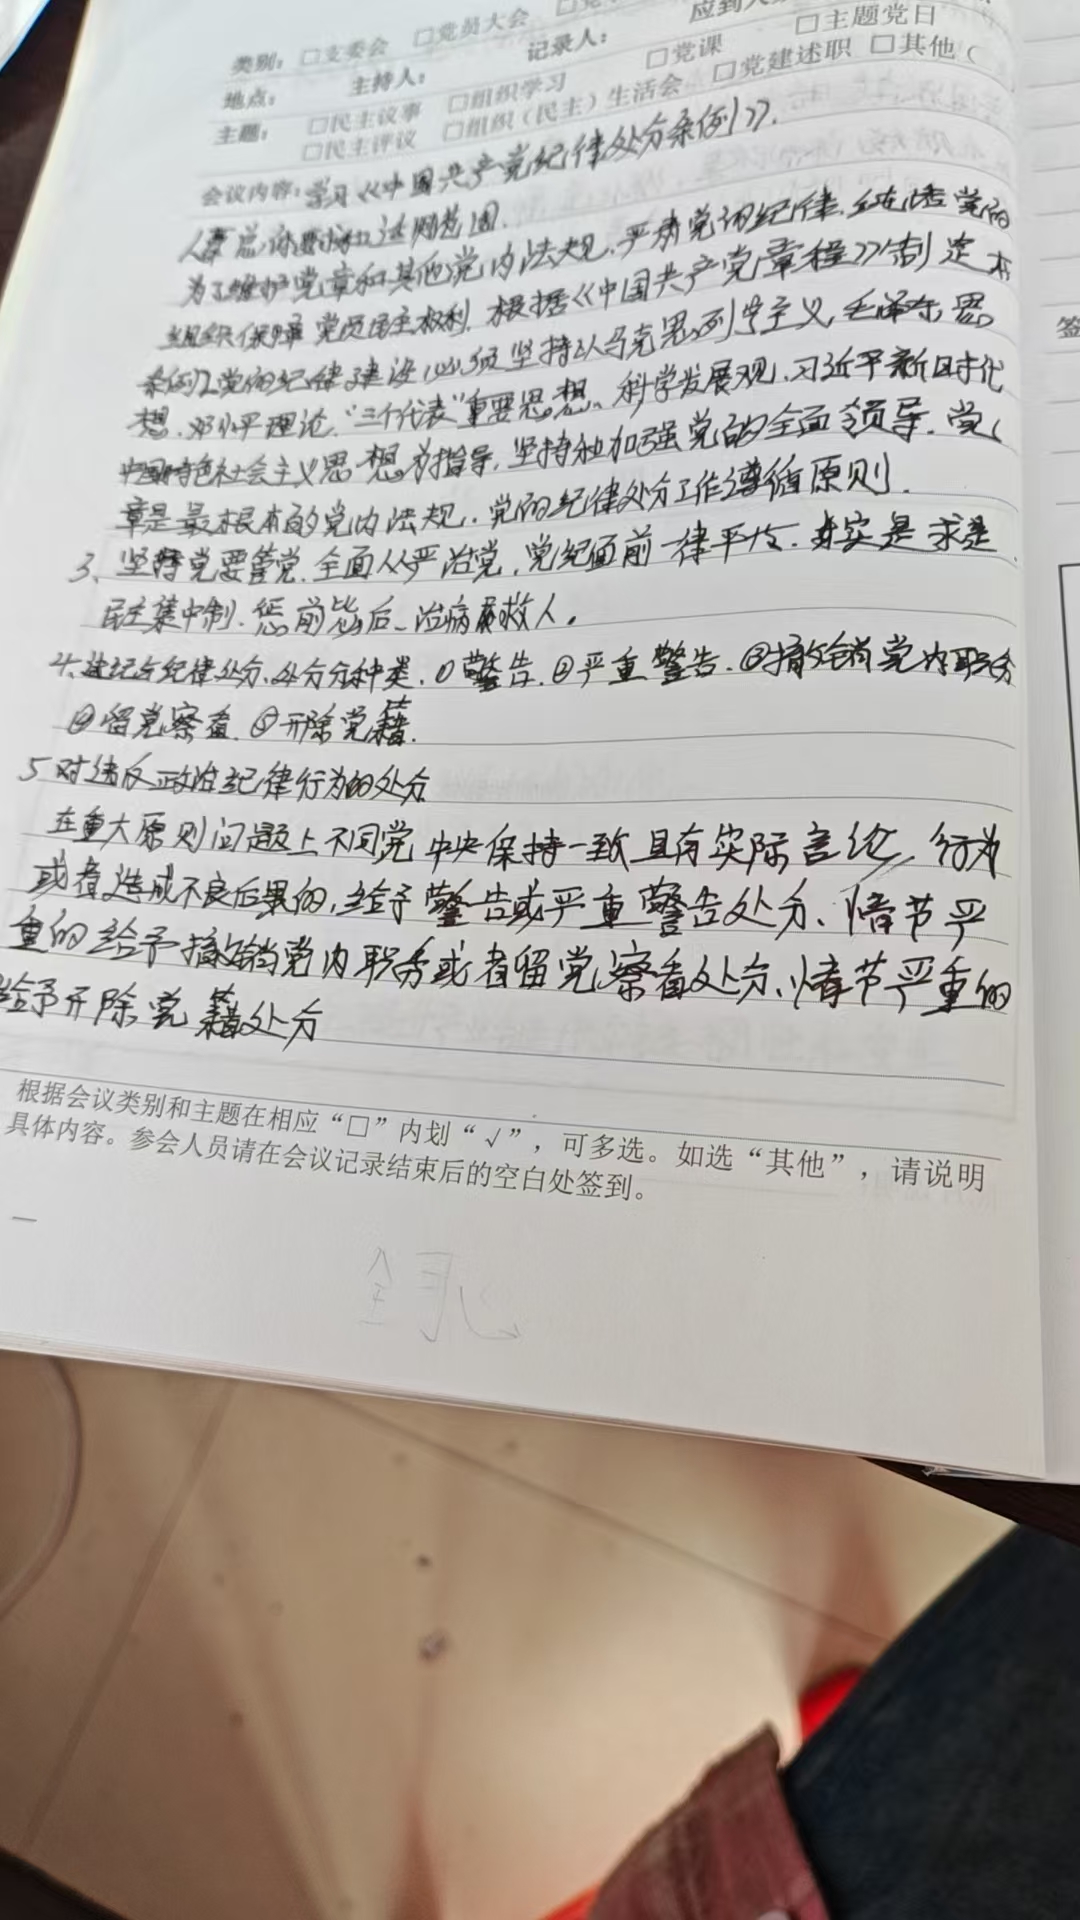 类别：□支委会 □党员大会 □党
地点： 主持人： 记录人： 应到人
主题： □民主议事 □组织学习 □党课 □主题党日
□民主评议 □组织（民主）生活会 □党建述职 □其他（
会议内容：学习《中国共产党纪律处分条例》.
为了维护党章和其他党内法规、严肃党的纪律、纯洁党的
组织保障党员民主权利、根据《中国共产党章程》制定本
条例2.党的纪律建设必须坚持以马克思列宁主义、毛泽东思
想、邓小平理论、“三个代表”重要思想、科学发展观、习近平新时代
中国特色社会主义思想为指导、坚持和加强党的全面领导、党
章是最根本的党内法规、党的纪律处分工作遵循原则.
3、坚持党要管党、全面从严治党、党纪面前一律平等、实事求是
民主集中制、惩前毖后、治病救人。
4、违纪与纪律处分、处分种类、①警告、②严重警告、③撤销党内职务
④留党察看、⑤开除党籍.
5 对违反政治纪律行为的处分
在重大原则问题上不同党中央保持一致且有实际言论、行为
或者造成不良后果的、给予警告或严重警告处分、情节严
重的给予撤销党内职务或者留党察看处分、情节严重的
给予开除党籍处分
根据会议类别和主题在相应“□”内划“√”，可多选。如选“其他”，请说明
具体内容。参会人员请在会议记录结束后的空白处签到。
签